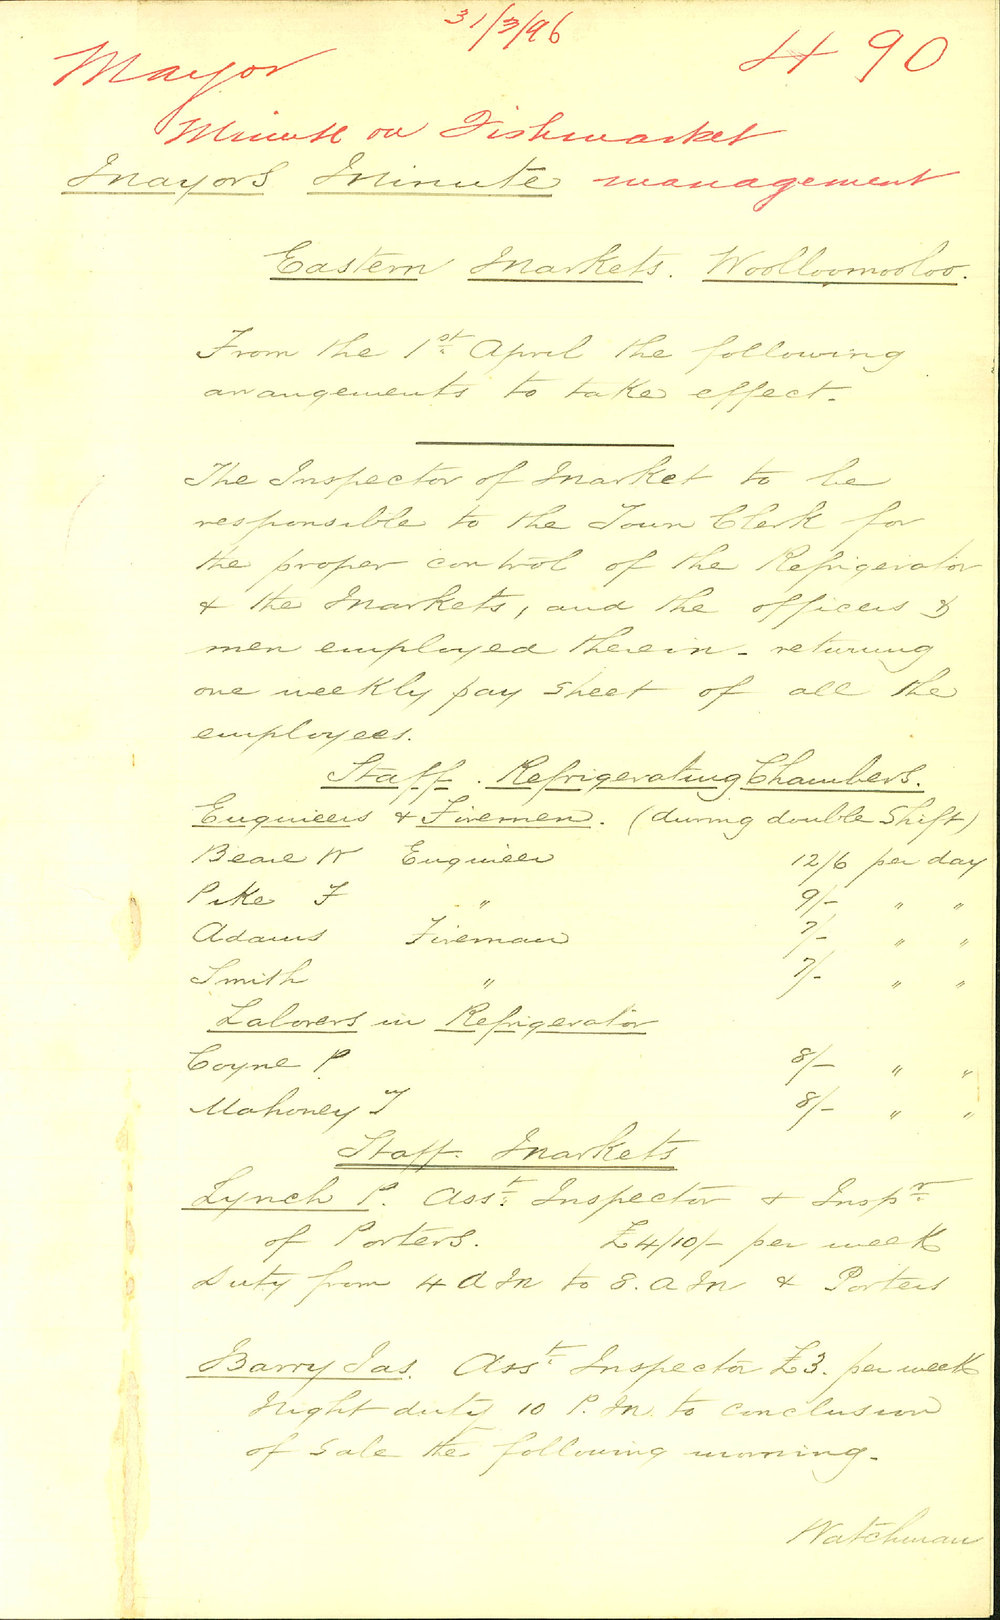 31/3/96
Mayor 490
Minute on Fishmarket
management
Mayors Minute
Eastern Markets. Woolloomooloo.
From the 1st April the following
arrangements to take effect.
The Inspector of Market to be
responsible to the Town Clerk for
the proper control of the Refrigerator
& the Markets, and the officers &
men employed therein - returning
one weekly pay sheet of all the
employees.
Staff. Refrigerating Chambers.
Engineers & Firemen. (during double Shift)
Beare W Engineer 12/6 per day
Pike F " 9/- " "
Adams Fireman 7/- " "
Smith " 7/- " "
Laborers in Refrigerator
Coyne P 8/- " "
Mahoney T 8/- " "
Staff. Markets
Lynch P. Asst. Inspector & Inspr.
of Porters. £4/10/- per week
Duty from 4 A M to 8. A M & Porters
Barry Jas. Asst. Inspector £3. per week
Night duty 10 P.M. to conclusion
of Sale the following morning.
Watchman